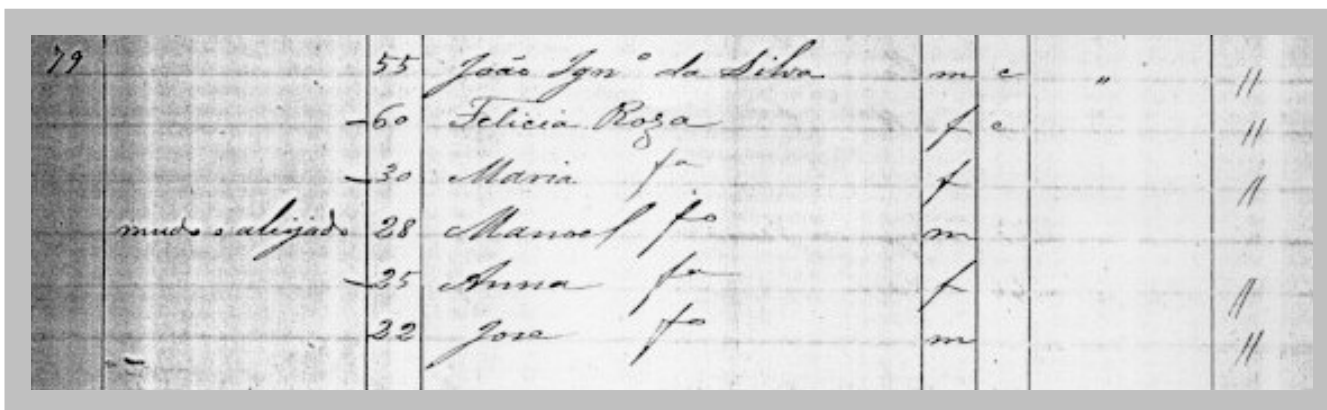 79 55 João Ign.º da Silva m c " //
60 Felicia Roza f c //
30 Maria fª f //
mudo e aleijado 28 Manoel fº m
25 Anna fª f //
22 Jose fº m //